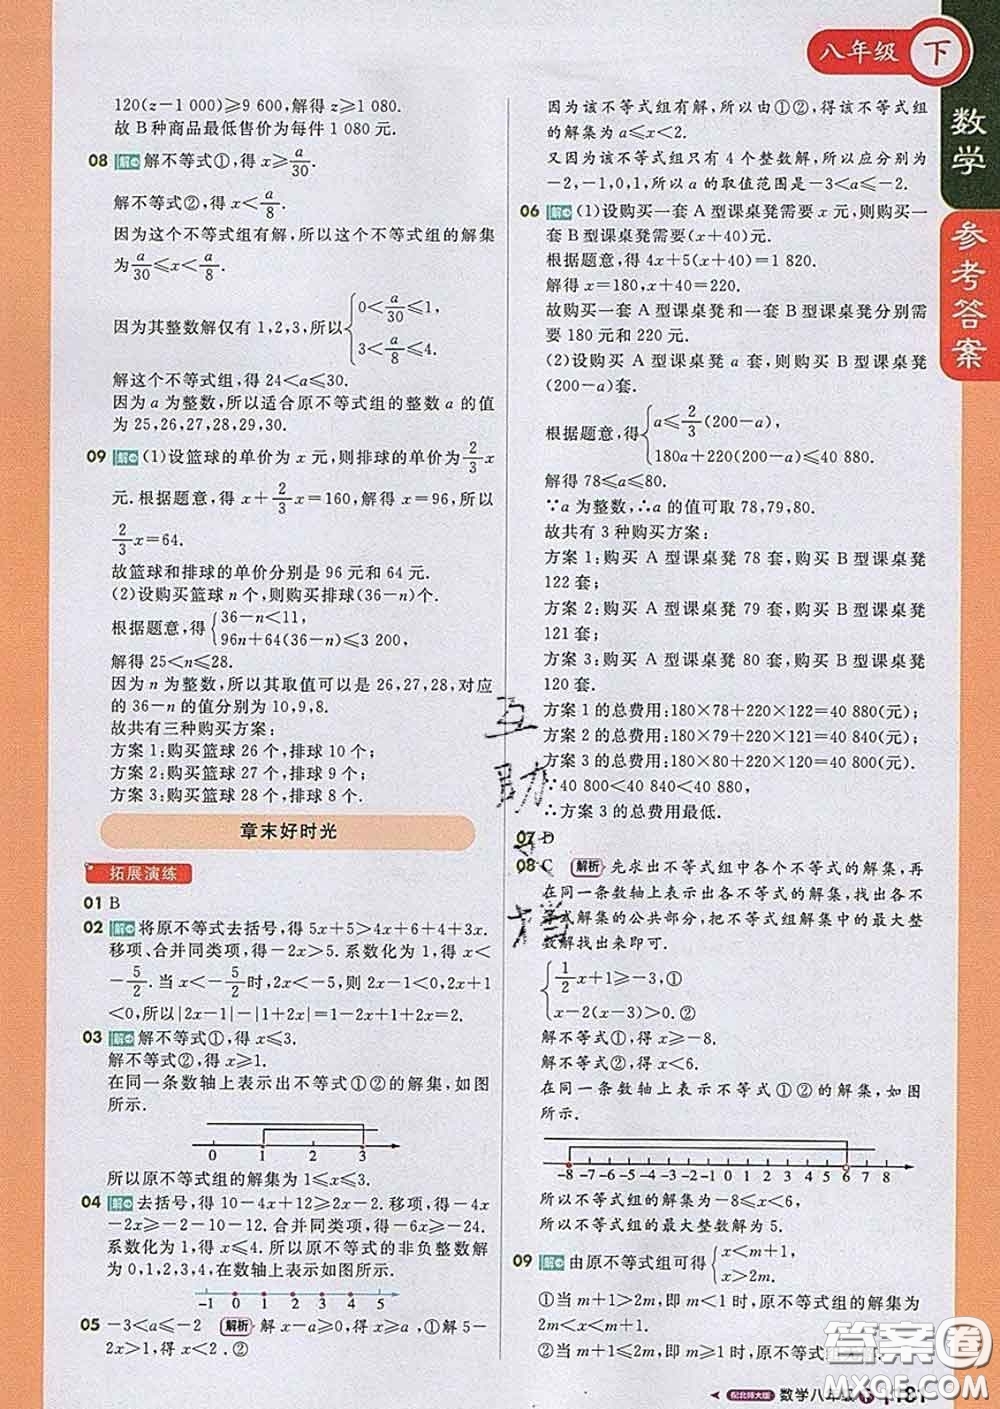 八年级 下
数学
参考答案
120(z－1 000)≥9 600,解得 z≥1 080.
故 B 种商品最低售价为每件 1 080 元.
08 解 解不等式①,得 x≥a/30.
解不等式②,得 x<a/8.
因为这个不等式组有解,所以这个不等式组的解集
为a/30≤x<a/8.
因为其整数解仅有 1,2,3,所以{0<a/30≤1,
3<a/8≤4.
解这个不等式组,得 24<a≤30.
因为 a 为整数,所以适合原不等式组的整数 a 的值
为 25,26,27,28,29,30.
09 解 (1)设篮球的单价为 x 元,则排球的单价为2/3x
元.根据题意,得 x＋2/3x＝160,解得 x＝96,所以
2/3x＝64.
故篮球和排球的单价分别是 96 元和 64 元.
(2)设购买篮球 n 个,则购买排球(36－n)个.
根据题意,得{36－n<11,
96n＋64(36－n)≤3 200,
解得 25<n≤28.
因为 n 为整数,所以其取值可以是 26,27,28,对应
的 36－n 的值分别为 10,9,8.
故共有三种购买方案:
方案 1:购买篮球 26 个,排球 10 个;
方案 2:购买篮球 27 个,排球 9 个;
方案 3:购买篮球 28 个,排球 8 个.
章末好时光
拓展演练
01 B
02 解 将原不等式去括号,得 5x＋5>4x＋6＋4＋3x.
移项、合并同类项,得－2x>5.系数化为 1,得 x<
－5/2.当 x<－5/2时,2x<－5,则 2x－1<0,2x＋1
<0,所以|2x－1|－|1＋2x|＝1－2x＋1＋2x＝2.
03 解 解不等式①,得 x≤3.
解不等式②,得 x≥1.
在同一条数轴上表示出不等式①②的解集,如图
所示.
0 1 2 3
所以原不等式组的解集为 1≤x≤3.
04 解 去括号,得 10－4x＋12≥2x－2.移项,得－4x
－2x≥－2－10－12.合并同类项,得－6x≥－24.
系数化为 1,得 x≤4.所以原不等式的非负整数解
为 0,1,2,3,4,在数轴上表示如图所示.
－1 0 1 2 3 4 5
05 －3<a≤－2 解析 解 x－a≥0,得 x≥a,①解 5－
2x>1,得 x<2.②
因为该不等式组有解,所以由①②,得该不等式组
的解集为 a≤x<2.
又因为该不等式组只有 4 个整数解,所以应分别为
－2,－1,0,1,所以 a 的取值范围是－3<a≤－2.
06 解 (1)设购买一套 A 型课桌凳需要 x 元,则购买一
套 B 型课桌凳需要(x＋40)元.
根据题意,得 4x＋5(x＋40)＝1 820.
解得 x＝180,x＋40＝220.
故购买一套 A 型课桌凳和一套 B 型课桌凳分别需
要 180 元和 220 元.
(2)设购买 A 型课桌凳 a 套,则购买 B 型课桌凳
(200－a)套.
根据题意,得{a≤2/3(200－a),
180a＋220(200－a)≤40 880.
解得 78≤a≤80.
∵a 为整数,∴a 的值可取 78,79,80.
故共有 3 种购买方案:
方案 1:购买 A 型课桌凳 78 套,购买 B 型课桌凳
122 套;
方案 2:购买 A 型课桌凳 79 套,购买 B 型课桌凳
121 套;
方案 3:购买 A 型课桌凳 80 套,购买 B 型课桌凳
120 套.
方案 1 的总费用:180×78＋220×122＝40 880(元);
方案 2 的总费用:180×79＋220×121＝40 840(元);
方案 3 的总费用:180×80＋220×120＝40 800(元).
∵40 800<40 840<40 880,
∴方案 3 的总费用最低.
07 D
08 C 解析 先求出不等式组中各个不等式的解集,再
在同一条数轴上表示出各个不等式的解集,找出各不
等式解集的公共部分,把不等式组解集中的最大整
数解找出来即可.
{1/2x＋1≥－3,①
x－2(x－3)>0.②
解不等式①,得 x≥－8.
解不等式②,得 x<6.
在同一条数轴上表示不等式①②的解集,如图
所示.
－8 －7 －6 －5 －4 －3 －2 －1 0 1 2 3 4 5 6 7 8
所以不等式组的解集为－8≤x<6,
所以不等式组的最大整数解为 5.
09 解 由原不等式组可得{x<m＋1,
x>2m.
①当 m＋1>2m,即 m<1 时,原不等式组的解集为
2m<x<m＋1;
②当 m＋1≤2m,即 m≥1 时,原不等式组无解.
互助
配北师大版 数学八年级 下 81
答案圈